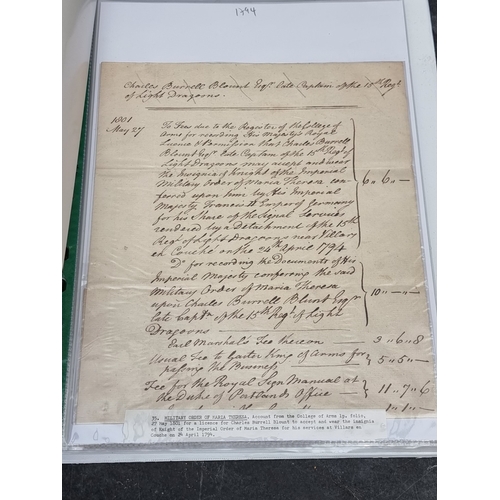 1794
Charles Burrell Blount Esqr. late Captain of the 15th Regt.
of Light Dragoons.
1801
May 27
To Fees due to the Register of the College of
Arms for recording His Majesty's Royal
Licence & Permission that Charles Burrell
Blount Esqr. late Captain of the 15th Regt. of
Light Dragoons may accept and wear
the Insignia of Knight of the Imperial
Military Order of Maria Theresa con-
ferred upon him by His Imperial
Majesty Francis II Emperor of Germany
for his Share of the Signal Services
rendered by a detachment of the 15th
Regt. of Light Dragoons near Villars
en Couche on the 24th April 1794 6 " 6 " —
Do. for recording the Documents of His
Imperial Majesty conferring the said
Military Order of Maria Theresa
upon Charles Burrell Blunt Esqr.
late Captn. of the 15th Regt. of Light
Dragoons 10 " — " —
Earl Marshal's Fee thereon 3 " 6 " 8
Usual Fee to Garter King of Arms for
passing the Business 5 " 5 " —
Fee for the Royal Sign Manual at
the Duke of Portland's Office 11 " 7 " 6
1 " 1 " —
35. MILITARY ORDER OF MARIA THERESA. Account from the College of Arms 1p. folio,
27 May 1801 for a licence for Charles Burrell Blount to accept and wear the insignia
of Knight of the Imperial Order of Maria Theresa for his services at Villars en
Couche on 24 April 1794.